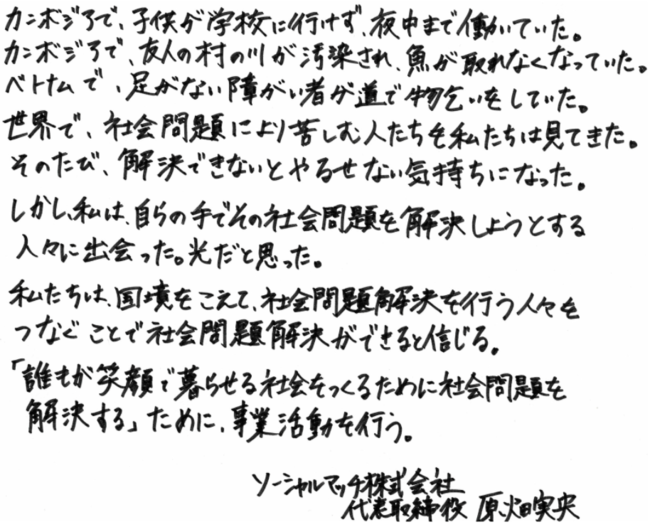 カンボジアで、子供が学校に行けず、夜中まで働いていた。
カンボジアで、友人の村の川が汚染され、魚が取れなくなっていた。
ベトナムで、足がない障がい者が道で物乞いをしていた。
世界で、社会問題により苦しむ人たちを私たちは見てきた。
そのたび、解決できないとやるせない気持ちになった。
しかし、私は、自らの手でその社会問題を解決しようとする
人々に出会った。光だと思った。
私たちは、国境をこえて、社会問題解決を行う人々を
つなぐことで社会問題解決ができると信じる。
「誰もが笑顔で暮らせる社会をつくるために社会問題を
解決する」ために、事業活動を行う。
ソーシャルマッチ株式会社
代表取締役 原畑実央